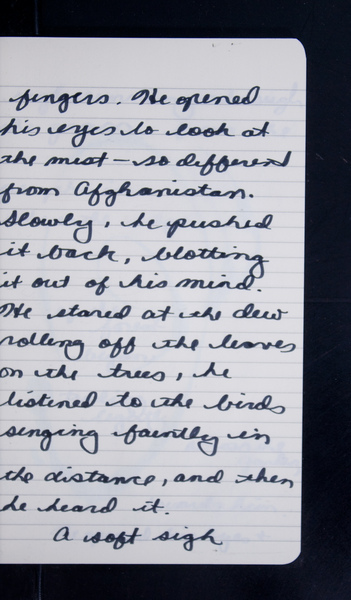 fingers. He opened
his eyes to look at
the mist - so different
from Afghanistan.
Slowly, he pushed
it back, blotting
it out of his mind.
He stared at the dew
rolling off the leaves
on the trees, he
listened to the birds
singing faintly in
the distance, and then
he heard it.
A soft sigh